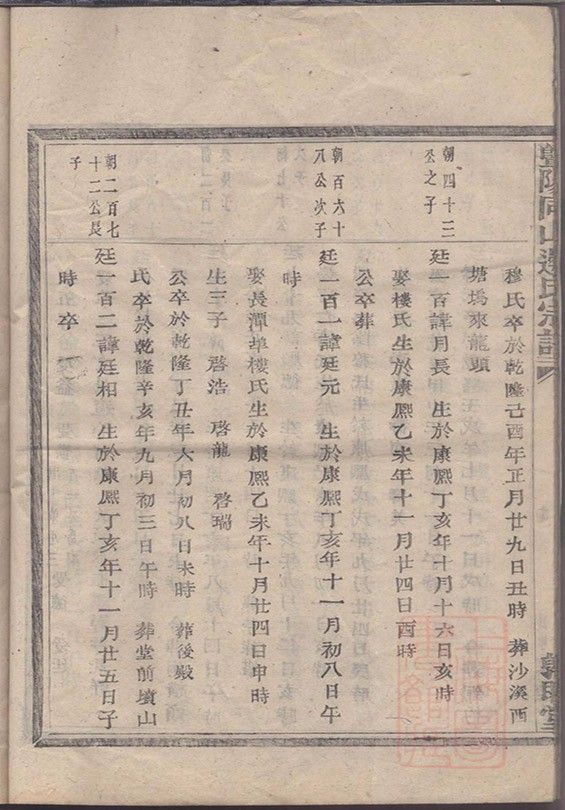 暨陽同山邊氏宗譜
敦睦堂
穆氏卒於乾隆己酉年正月廿九日丑時 葬沙溪西
塘塢來龍頭
朝四十三
公之子
廷一百諱月長 生於康熙丁亥年十月十六日亥時
娶樓氏生於康熙乙未年十一月廿四日酉時
公卒葬
朝百六十
八公次子
廷一百一諱廷元 生於康熙丁亥年十一月初八日午
時
娶長潭埠樓氏生於康熙乙未年十月廿四日申時
生三子 啓浩 啓龍 啓瑞
公卒於乾隆丁丑年六月初八日未時 葬後殿
氏卒於乾隆辛亥年九月初三日午時 葬堂前墳山
朝二百七
十二公長
子
廷一百二諱廷相 生於康熙丁亥年十一月廿五日子
時卒